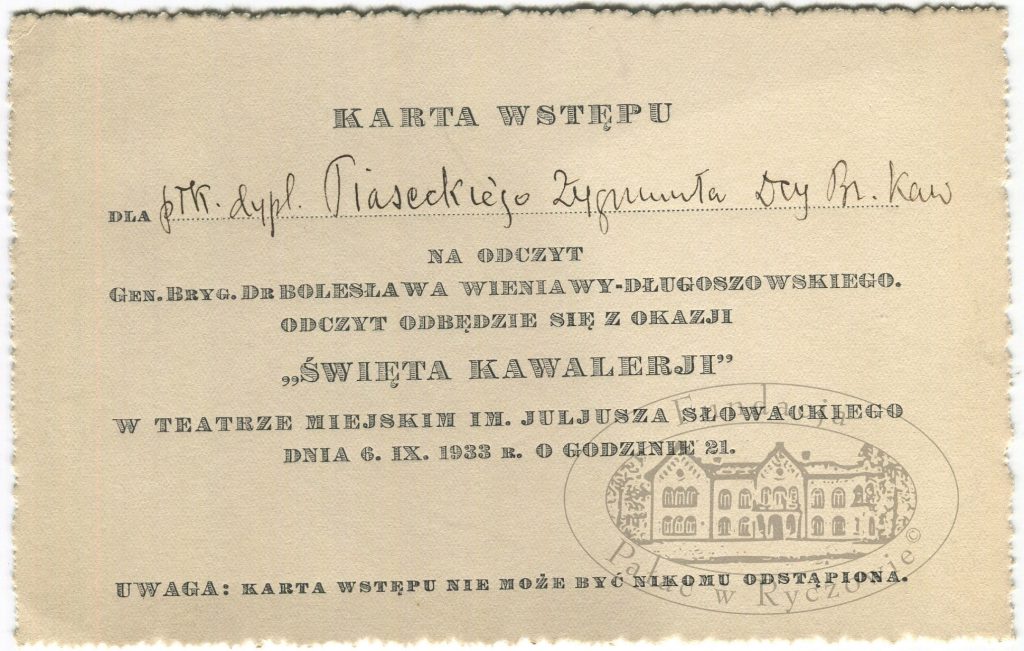 KARTA WSTĘPU
DLA płk. dypl. Piaseckiego Zygmunta Dcy Br. Kaw
NA ODCZYT
GEN. BRYG. DR BOLESŁAWA WIENIAWY-DŁUGOSZOWSKIEGO.
ODCZYT ODBĘDZIE SIĘ Z OKAZJI
„ŚWIĘTA KAWALERJI”
W TEATRZE MIEJSKIM IM. JULJUSZA SŁOWACKIEGO
DNIA 6. IX. 1933 R. O GODZINIE 21.
UWAGA: KARTA WSTĘPU NIE MOŻE BYĆ NIKOMU ODSTĄPIONA.
Fundacja
Pałac w Ryczowie ©